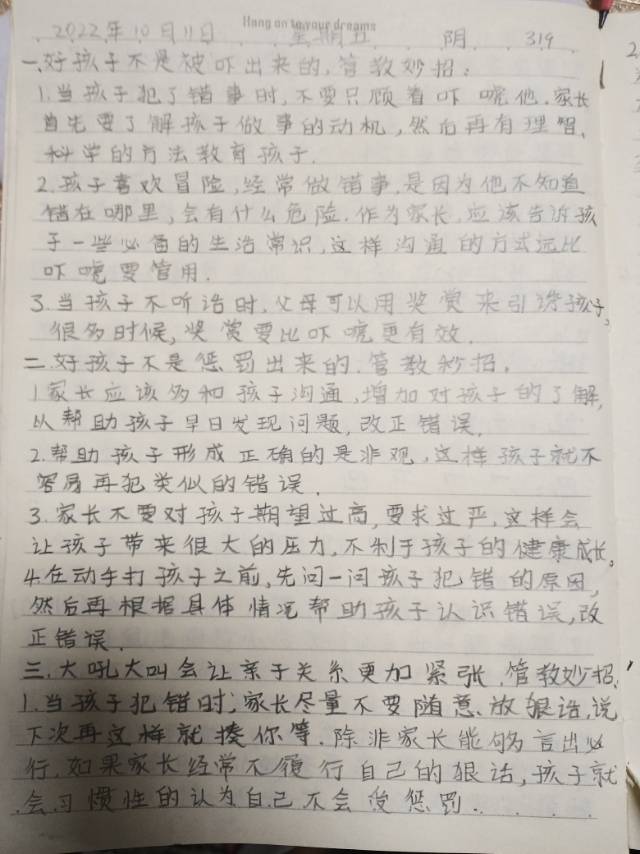 Hang on to your dreams
2022年10月11日 星期五 阴 319
一、好孩子不是被吓出来的,管教妙招:
1.当孩子犯了错事时,不要只顾着吓唬他.家长
首先要了解孩子做事的动机,然后再有理智、
科学的方法教育孩子.
2.孩子喜欢冒险,经常做错事,是因为他不知道
错在哪里,会有什么危险.作为家长,应该告诉孩
子一些必备的生活常识,这样沟通的方式远比
吓唬要管用.
3.当孩子不听话时,父母可以用奖赏来引诱孩子,
很多时候,奖赏要比吓唬更有效.
二.好孩子不是惩罚出来的.管教妙招。
1家长应该多和孩子沟通,增加对孩子的了解,
从帮助孩子早日发现问题,改正错误.
2.帮助孩子形成正确的是非观,这样孩子就不
容易再犯类似的错误.
3.家长不要对孩子期望过高,要求过严,这样会
让孩子带来很大的压力,不利于孩子的健康成长。
4.在动手打孩子之前,先问一问孩子犯错的原因,
然后再根据具体情况帮助孩子认识错误,改
正错误.
三.大吼大叫会让亲子关系更加紧张.管教妙招.
1.当孩子犯错时,家长尽量不要随意、放狠话,说
下次再这样就揍你等.除非家长能够言出必
行.如果家长经常不履行自己的狠话,孩子就
会习惯性的认为自己不会受惩罚.